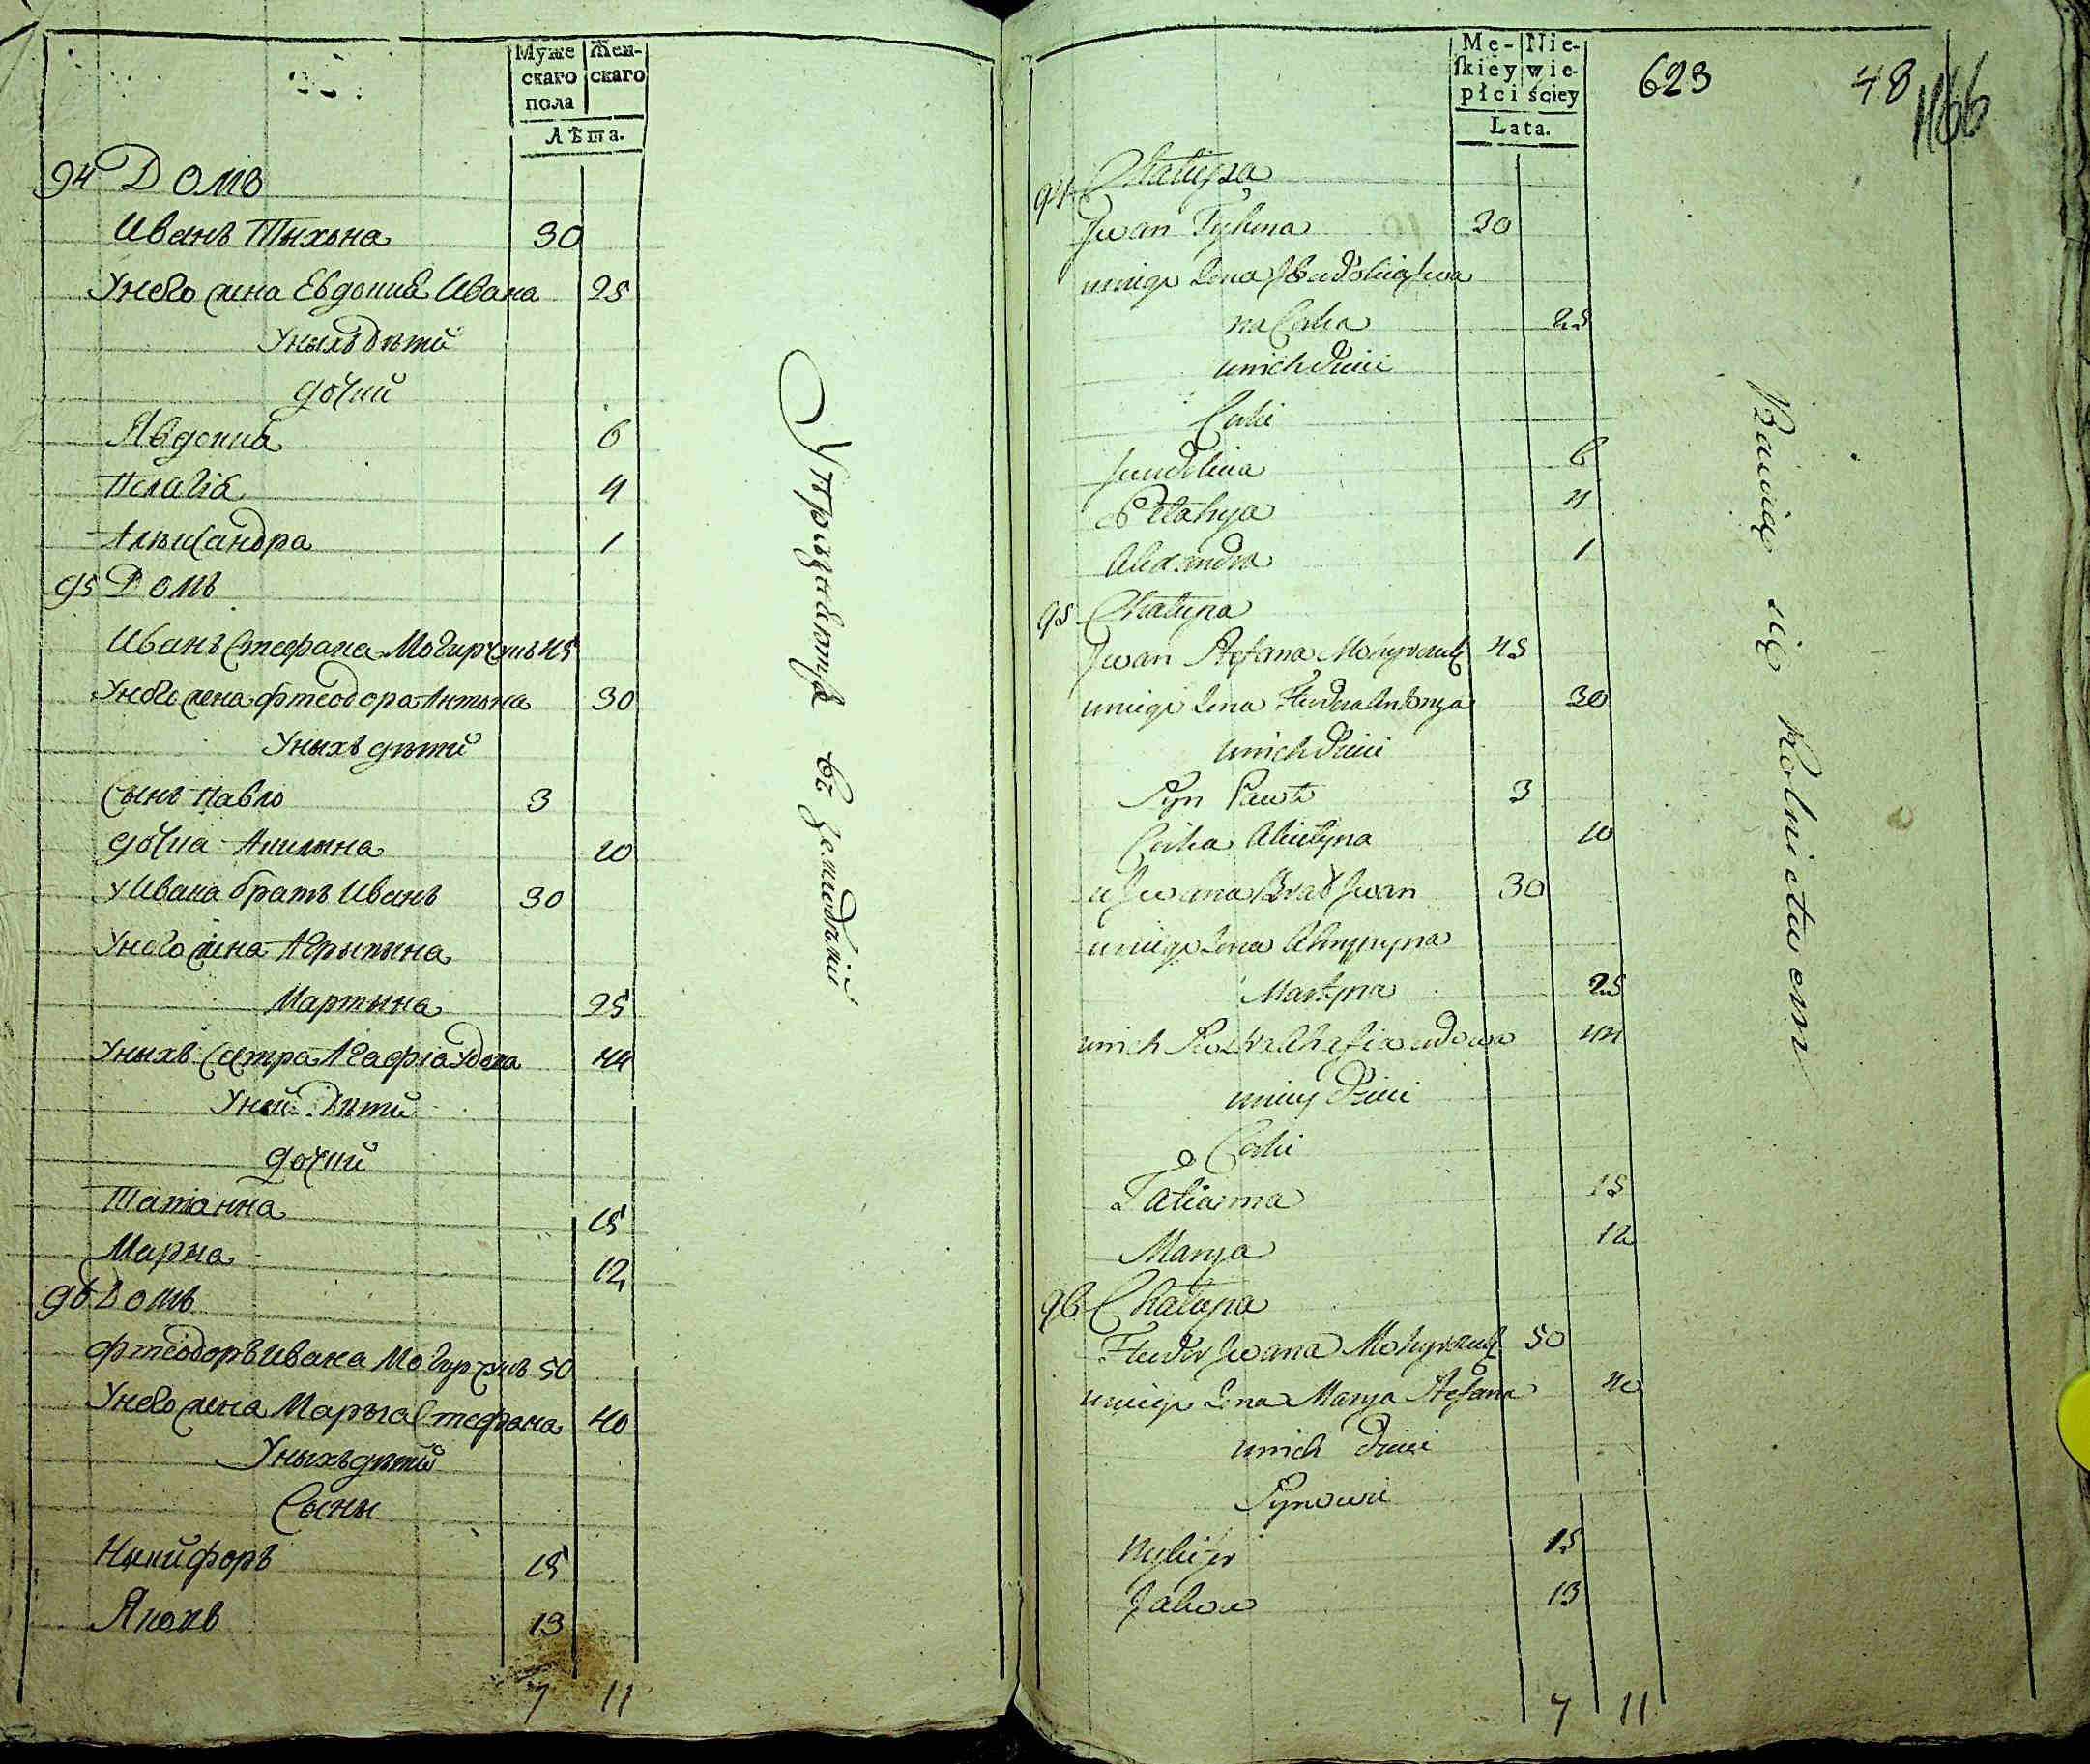 Муже Жен-
скаго скаго
пола
Лѣта.
94 Домъ
Иванъ Тихона 30
У него жена Евдокия Ивана 25
У нихъ дѣти
дочки
Явдокия 6
Пелагiя 4
Александра 1
95 Домъ
Иванъ Стефана Могирчукъ 45
У него жена Фтеодора Антона 30
У нихъ дѣти
Сынъ Павло 3
дочка Акилына 10
У Ивана братъ Иванъ 30
У него жена Агрыпына
Мартына 25
У ныхъ сестра Агафiя Удова 44
У ней дѣти
дочки
Татiанна 15
Марыа 12
96 Домъ
Фтеодоръ Ивана Могирчукъ 50
У него жена Марыа Стефана 40
У ныхъ дѣти
Сыны
Никифоръ 15
Яковъ 13
7 11
Упражняются въ земледѣлии
Mę- Nie-
ſkiey wie-
płci ściey
Lata.
623 48 1166
94 Chałupa
Jwan Tyhona 30
u niego Żona Jewdokia Jwa
na Corka 25
u nich dzieci
Corki
Jewdokia 6
Pelahya 4
Alexandra 1
95 Chałupa
Jwan Stefana Mohyrczuk 45
u niego Żona Fteudora Antonya 30
u nich dzieci
Syn Pawło 3
Corka Akilyna 10
u Jwana Brat Jwan 30
u niego Żona Ahrypyna
Martyna 25
u nich Siostra Ahafia wdowa 44
u niey dzieci
Corki
Tatianna 15
Marya 12
96 Chałupa
Fteudor Jwana Mohyrczuk 50
u niego Żona Marya Stefana 40
u nich dzieci
Synowie
Nykifor 15
Jakow 13
7 11
Bawią się Rolnictwem